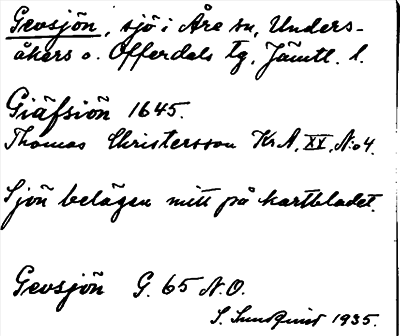 Gevsjön, sjö i Åre sn, Unders-
åkers o. Offerdals tg, Jämtl. l.
Giäfsiön 1645.
Thomas Christersson KrA, XX, No 4.
Sjön belägen mitt på kartbladet.
Gevsjön G. 65 N.O.
S. Sundquist 1935.